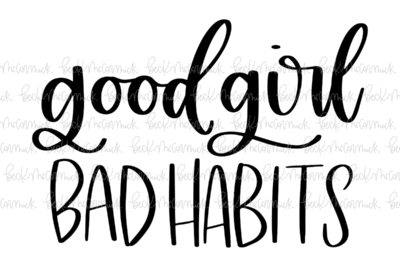 good girl
BAD HABITS